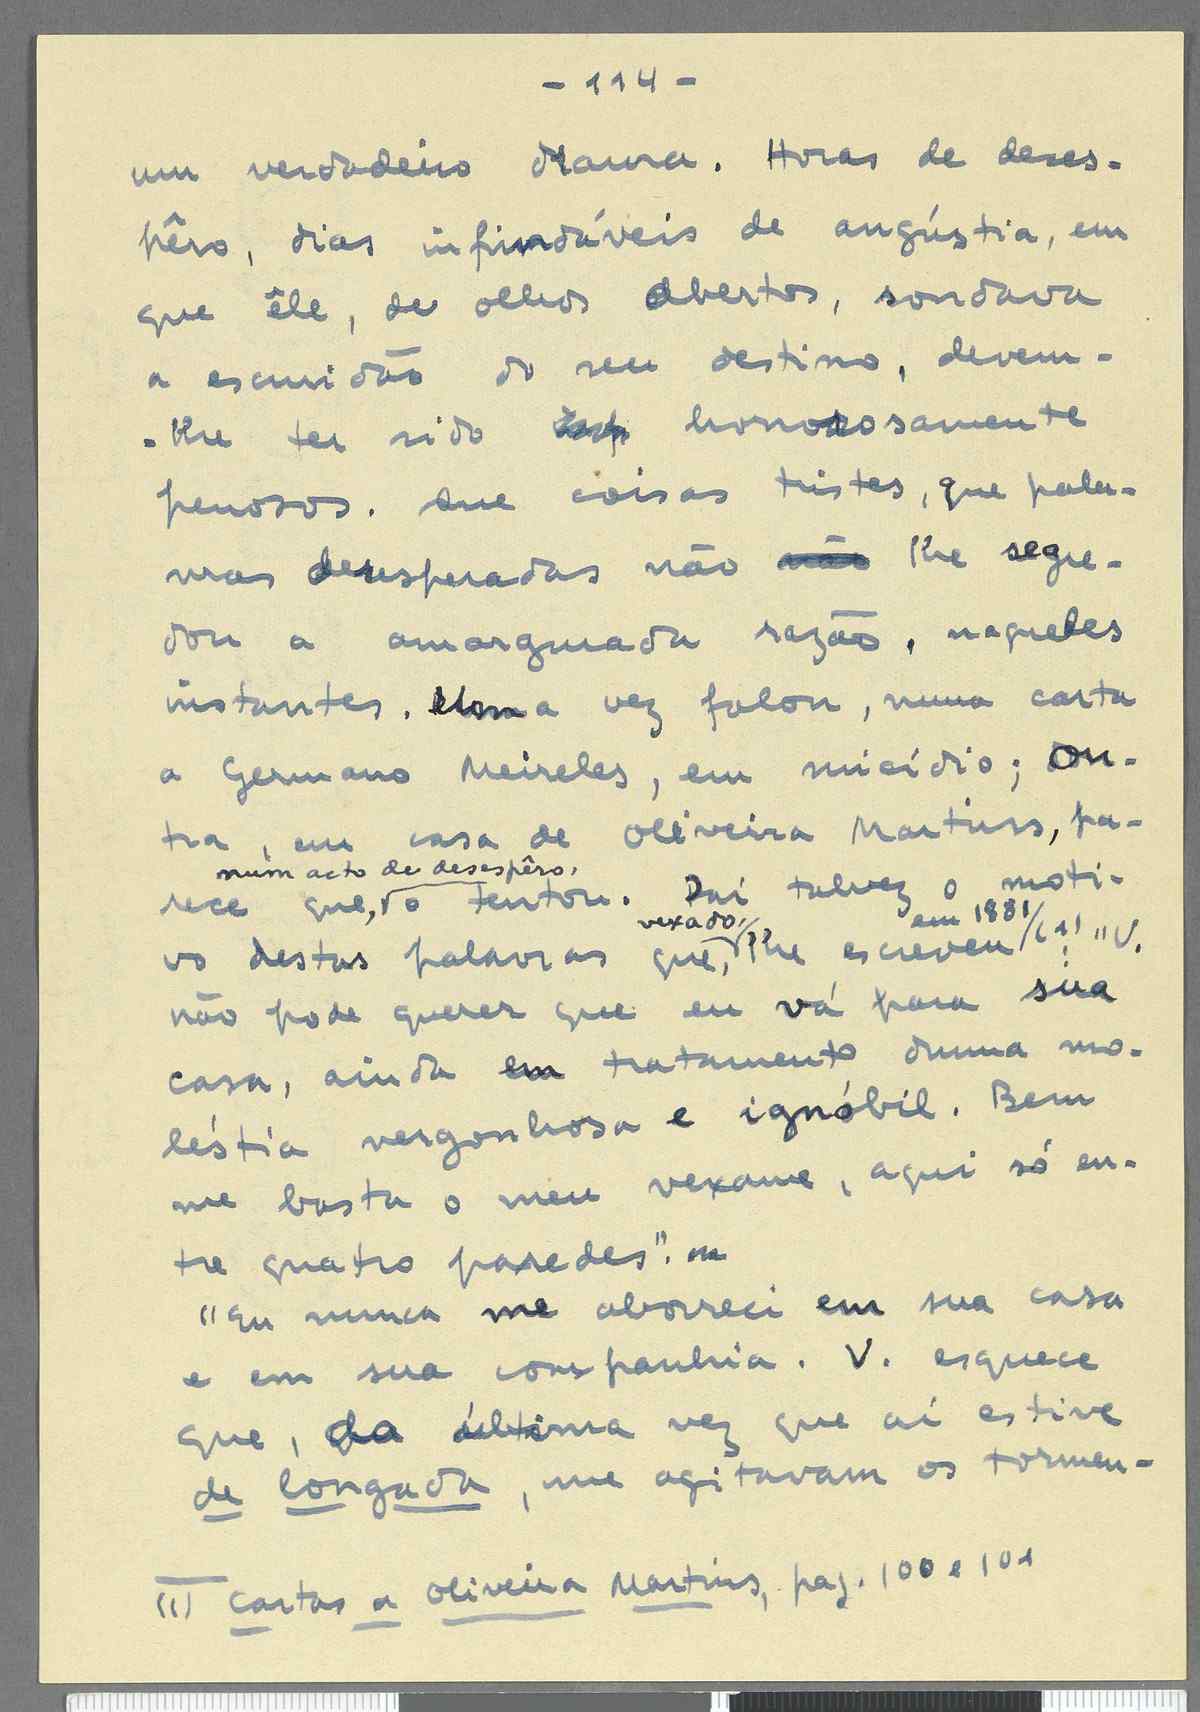 - 114 -
um verdadeiro drama. Horas de deses-
pêro, dias infindáveis de angústia, em
que êle, de olhos abertos, sondava
a escuridão do seu destino, devem-
-lhe ter sido horrorosamente
penosos. Que coisas tristes, que pala-
vras desesperadas não não lhe segre-
dou a amargurada razão, naqueles
instantes. Uma vez falou, numa carta
a Germano Meireles, em suicídio; ou-
tra, em casa de Oliveira Martins, pa-
num acto de desespêro,
rece que, o tentou. Daí talvez o moti-
vexado, em 1881
vo destas palavras que, lhe escreveu (1): "V.
não pode querer que eu vá para sua
casa, ainda em tratamento duma mo-
léstia vergonhosa e ignóbil. Bem
me basta o meu vexame, aqui só en-
tre quatro paredes".
"Eu nunca me aborreci em sua casa
e em sua companhia. V. esquece
que, da última vez que aí estive
de longada, me agitavam os tormen-
(1) Cartas a Oliveira Martins, pag. 100 e 101